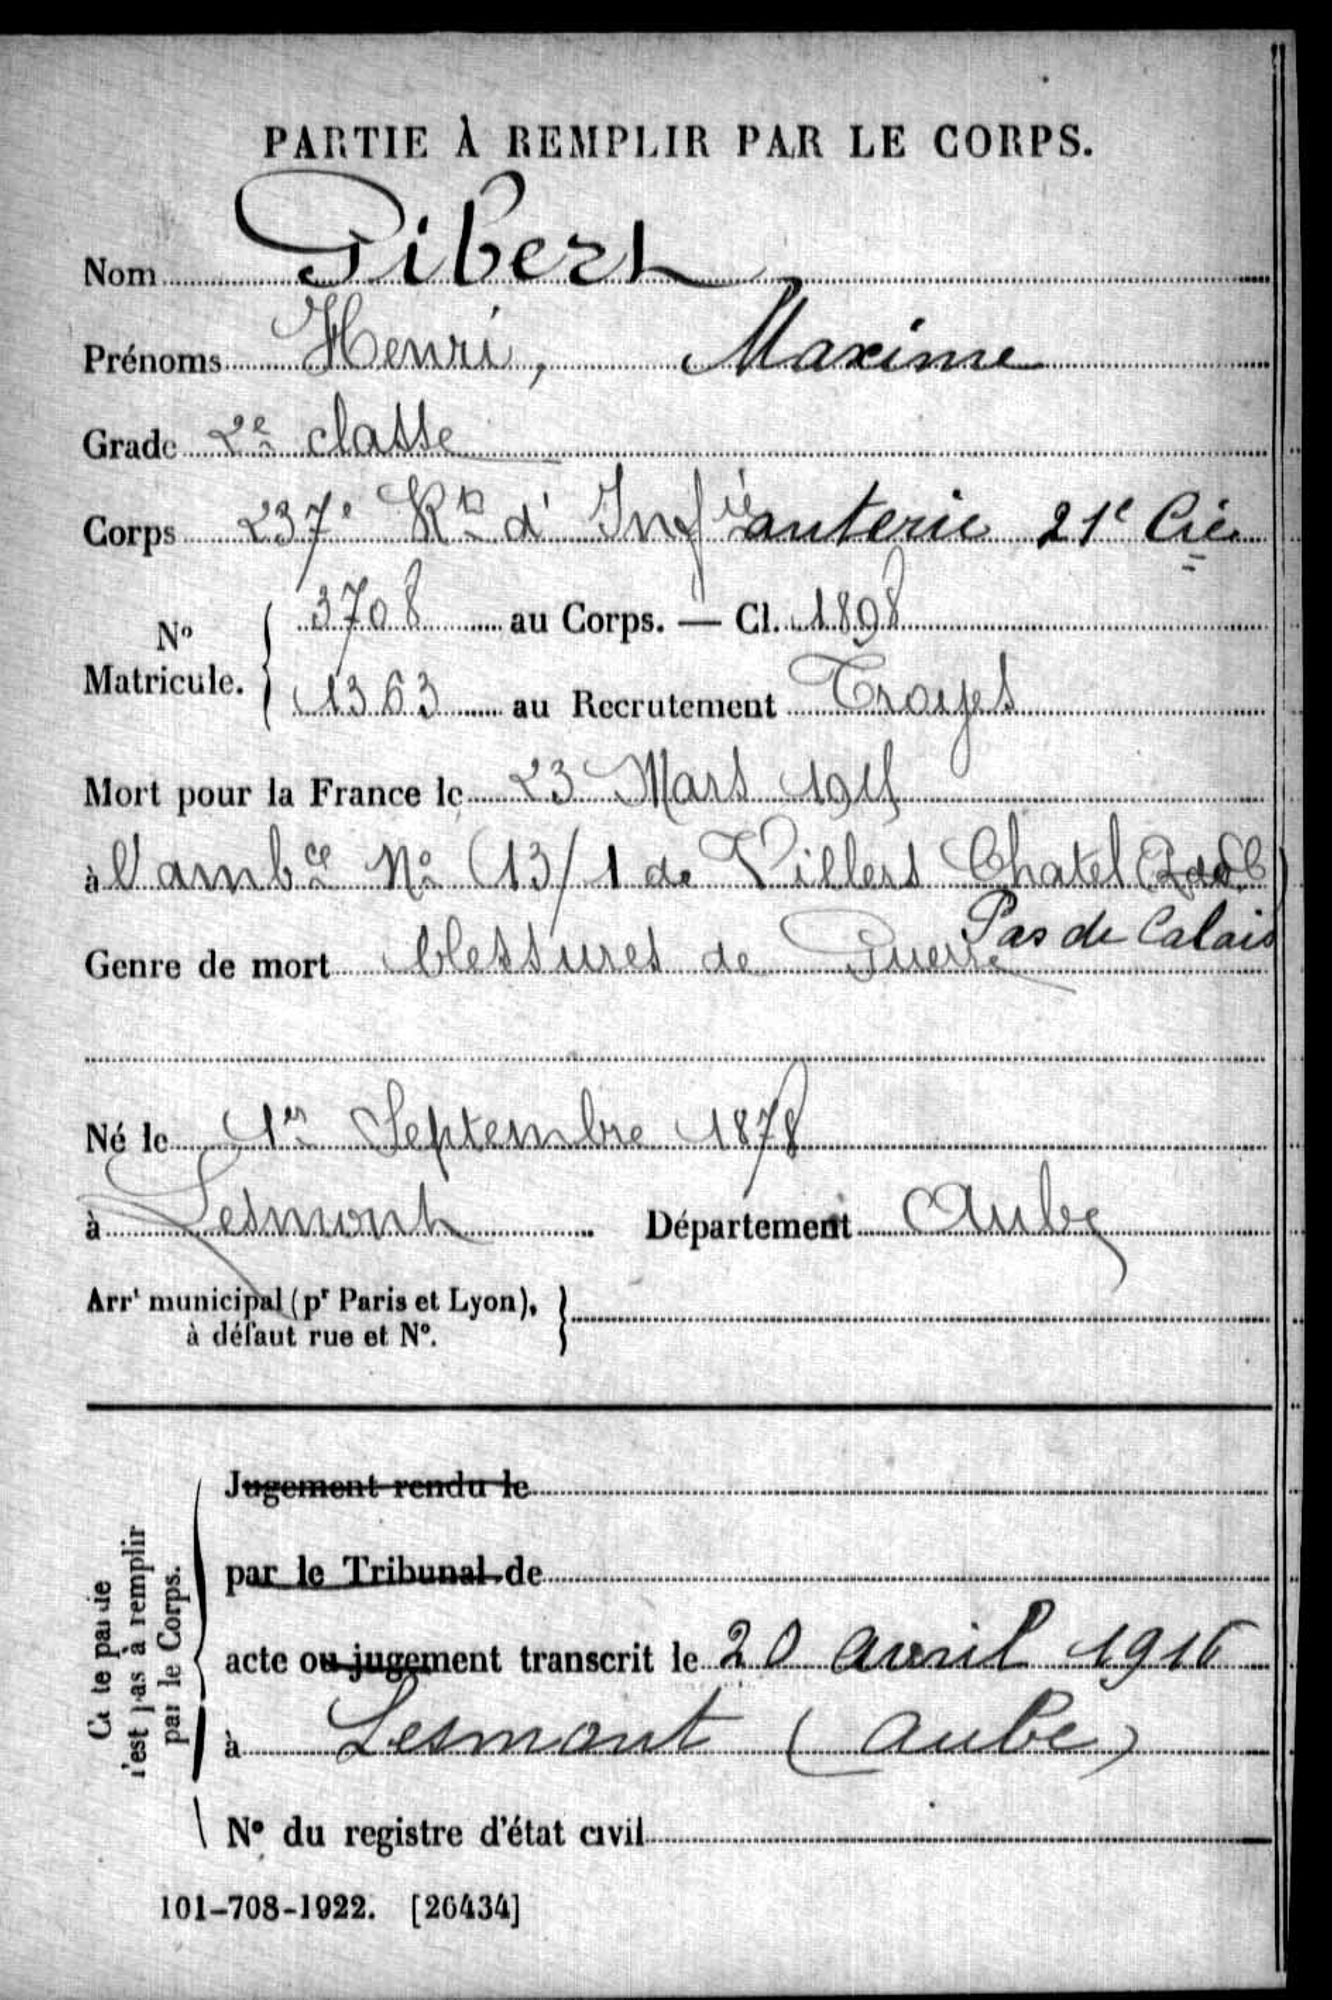 PARTIE À REMPLIR PAR LE CORPS.
Nom Gibert
Prénoms Henri, Maxime
Grade 2e classe
Corps 237e Rt d'Infie anterie 21e Cie
No Matricule. 3708 au Corps. — Cl. 1898
1363 au Recrutement Troyes
Mort pour la France le 23 Mars 1915
à l'ambce No 13/1 de Villers Chatel
Pas de Calais
Genre de mort blessures de Guerre
Né le 1er Septembre 1878
à Lesmont Département Aube
Arrt municipal (pr Paris et Lyon),
à défaut rue et No.
Cette partie
n'est pas à remplir
par le Corps.
Jugement rendu le
par le Tribunal de
acte ou jugement transcrit le 20 avril 1916
à Lesmont (Aube)
No du registre d'état civil
101-708-1922. [26434]